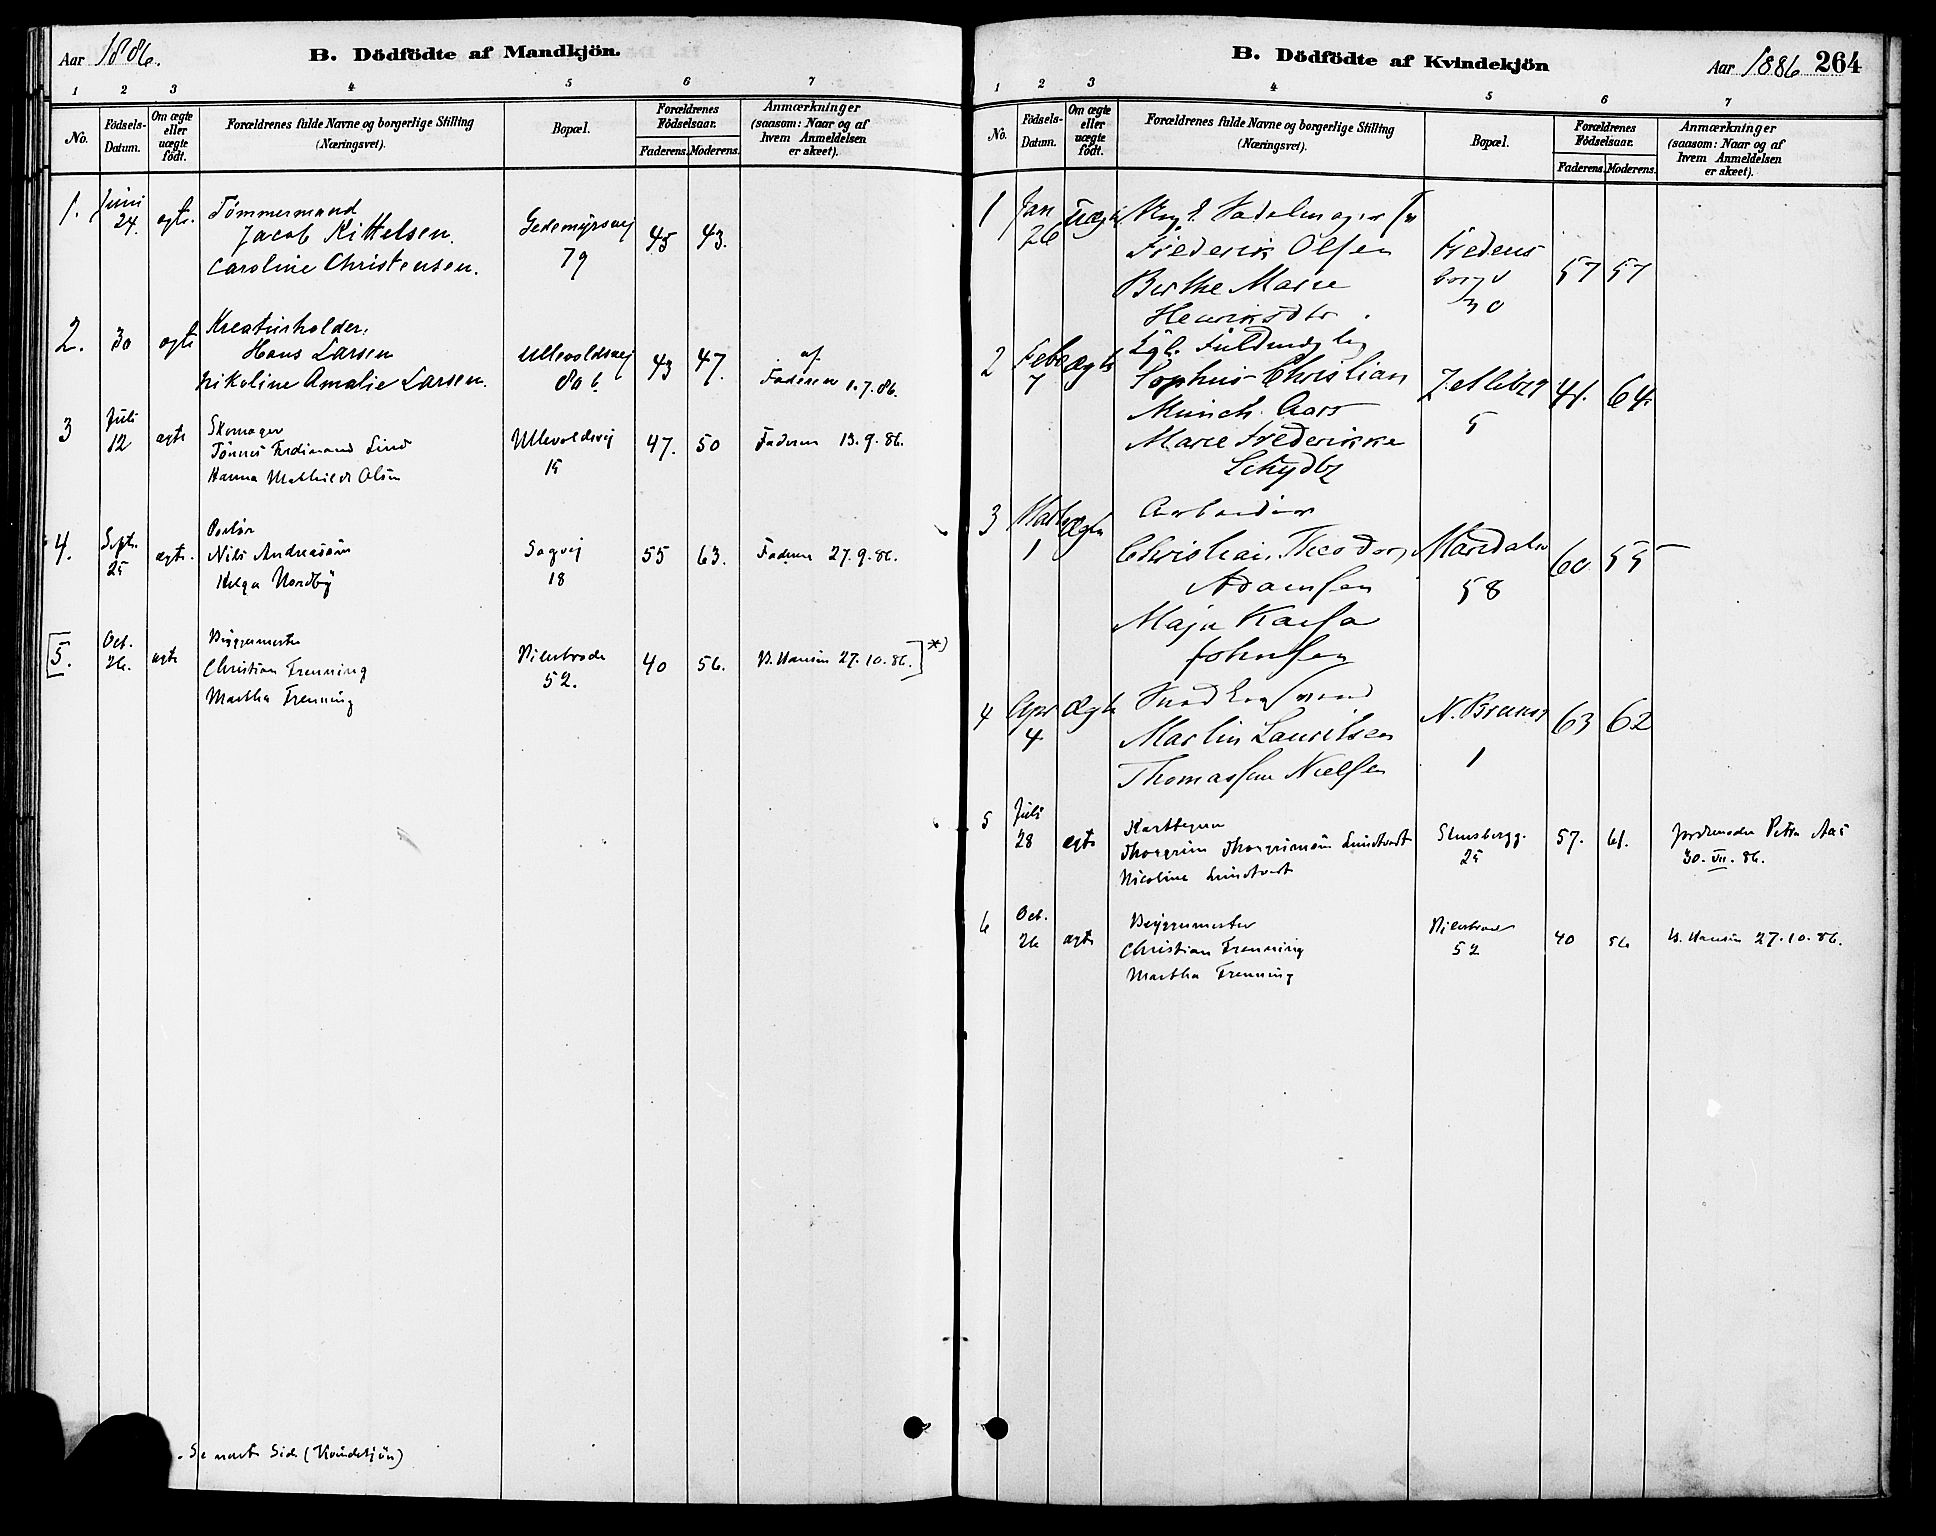 Aar 1886.
B. Dödfödte af Mandkjön.
1 2 3 4 5 6 7
No.
Födsels-Datum.
Om ægte eller uægte födt.
Forældrenes fulde Navne og borgerlige Stilling (Næringsvei).
Bopæl.
Forældrenes Födselsaar.
Faderens. Moderens.
Anmærkninger (saasom: Naar og af hvem Anmeldelsen er skeet).
1. Juni Tömmermand
24. ægte. Jacob Kittelsen. Gedemyrsvej 45 43.
Caroline Christensen. 79
2. 30 ægte Kreaturholder.
Hans Larsen Ullevoldsvej 43 47. af
Nikoline Amalie Larsen. 80 b Faderen 1.7.86.
3 Juli Skomager
12 ægte Tönnes Ferdinand Lind Ullevoldsvej 47. 50 Faderen 13.9.86.
Hanna Mathilde Olsen 15
4. Sept. Nils Andreasön Sagvej 55 63. Faderen 27.9.86.
25 ægte. Helga Nordby 18
[5. Oct. Byggmester
26. ægte Christian Frenning Pilestræde 40 56. B. Hansen 27.10.86.] *)
Martha Frenning 52.
Se næste Side (Kvindekjön)
B. Dödfödte af Kvindekjön
Aar 1886 264
1 2 3 4 5 6 7
No.
Födsels-Datum.
Om ægte eller uægte födt.
Forældrenes fulde Navne og borgerlige Stilling (Næringsvei).
Bopæl.
Forældrenes Födselsaar.
Faderens. Moderens.
Anmærkninger (saasom: Naar og af hvem Anmeldelsen er skeet).
1 Jan Uægte Ung. Sadelmager
26 Frederik Olsen Fredens
Berthe Marie borgv 57 57
Henriksdtr. 30
2 Febr ægte Kgl. Fuldmægtig
7 Sophus Christian 41. 64.
Munch Aars 5
Marie Frederikke
3 Marts Ægte Arbeider
1 Christian Theodor Maridalsv 60 55
Adamsen 58
Maja Kaisa
Johnsen
4 Apr Ægte
4 Martin Lauritsen N. Brunsg 63 62
Thomasine Nielsen 1
5 Juli
28 ægte Thorgrim Thorgrimsön Lundtvedt Stensbergg. 57. 61. Jordemoder Petra Aas
Nicoline Lundtvedt 25 30.VII.86.
6 Oct. Byggmester Pilestræde
26 ægte Christian Frenning 52 40 56 B. Hansen 27.10.86.
Martha Frenning